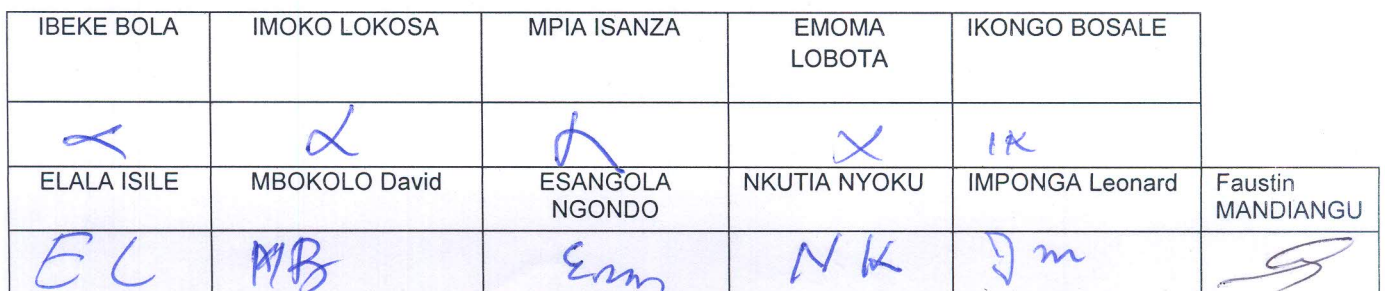 IBEKE BOLA IMOKO LOKOSA MPIA ISANZA EMOMA IKONGO BOSALE
LOBOTA
IK
ELALA ISILE MBOKOLO David ESANGOLA NKUTIA NYOKU IMPONGA Leonard Faustin
NGONDO MANDIANGU
EL MB NK Im